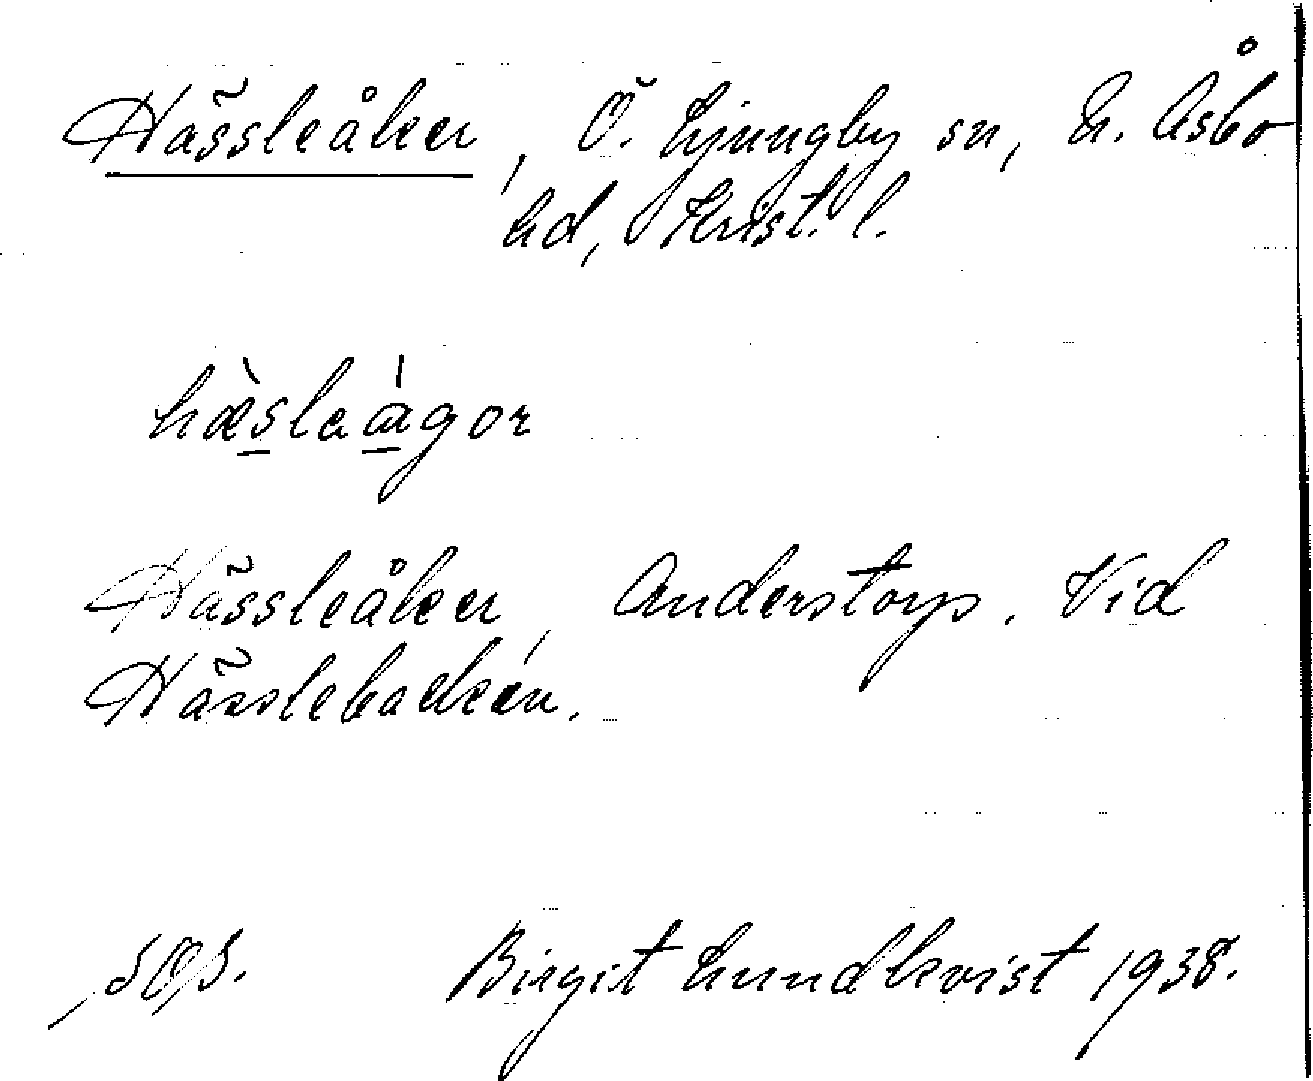 Hässleåker, Ö. Ljungby sn, N. Åsbo
hd, Krist. l.
hæ̀sleàgor
Hässleåker, Anderstorp. Vid
Hässlebacken.
Birgit Lundkvist 1938.